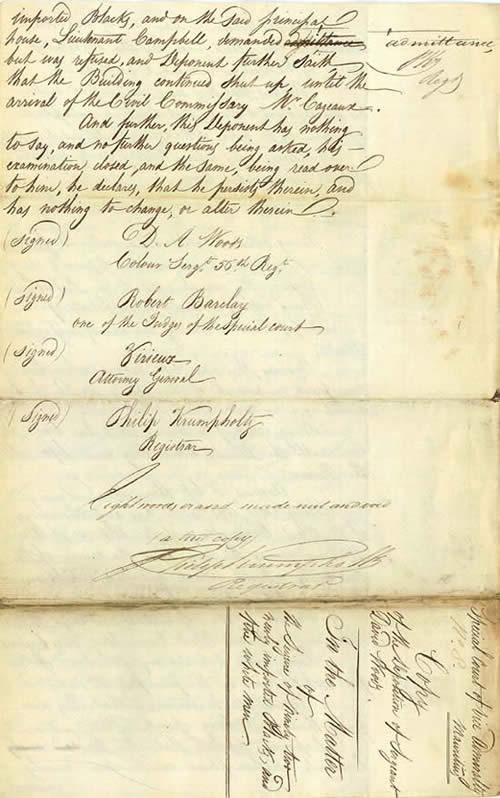 imported Blacks, and on the said principal
house, Lieutenant Campbell, demanded admittance
but was refused, and Deponent further Saith
that the Building continued shut up, until the
arrival of the Civil Commissary Mr. Cazeaux.
And further, this Deponent has nothing
to say, and no further questions being asked, his
examination closed, and the same, being read over
to him, he declares, that he persists therein, and
has nothing to change, or alter therein.
admittance,
PK
Regr
(Signed)
D. A Woods
Colour Sergt. 56th Regt.
(Signed)
Robert Barclay
one of the Judges of the Special court
(Signed)
Virieux
Attorney General
(Signed)
Philip Krumpholtz
Registrar
Eight words erased made null and void
a true copy
Philip Krumpholtz
Registrar
Special Court of Vice Admiralty
Mauritius
Copy
of the Deposition of Serjeant
David Woods
In the Matter
of
the Seizure of Ninety two
newly imported Blacks, and
three white men